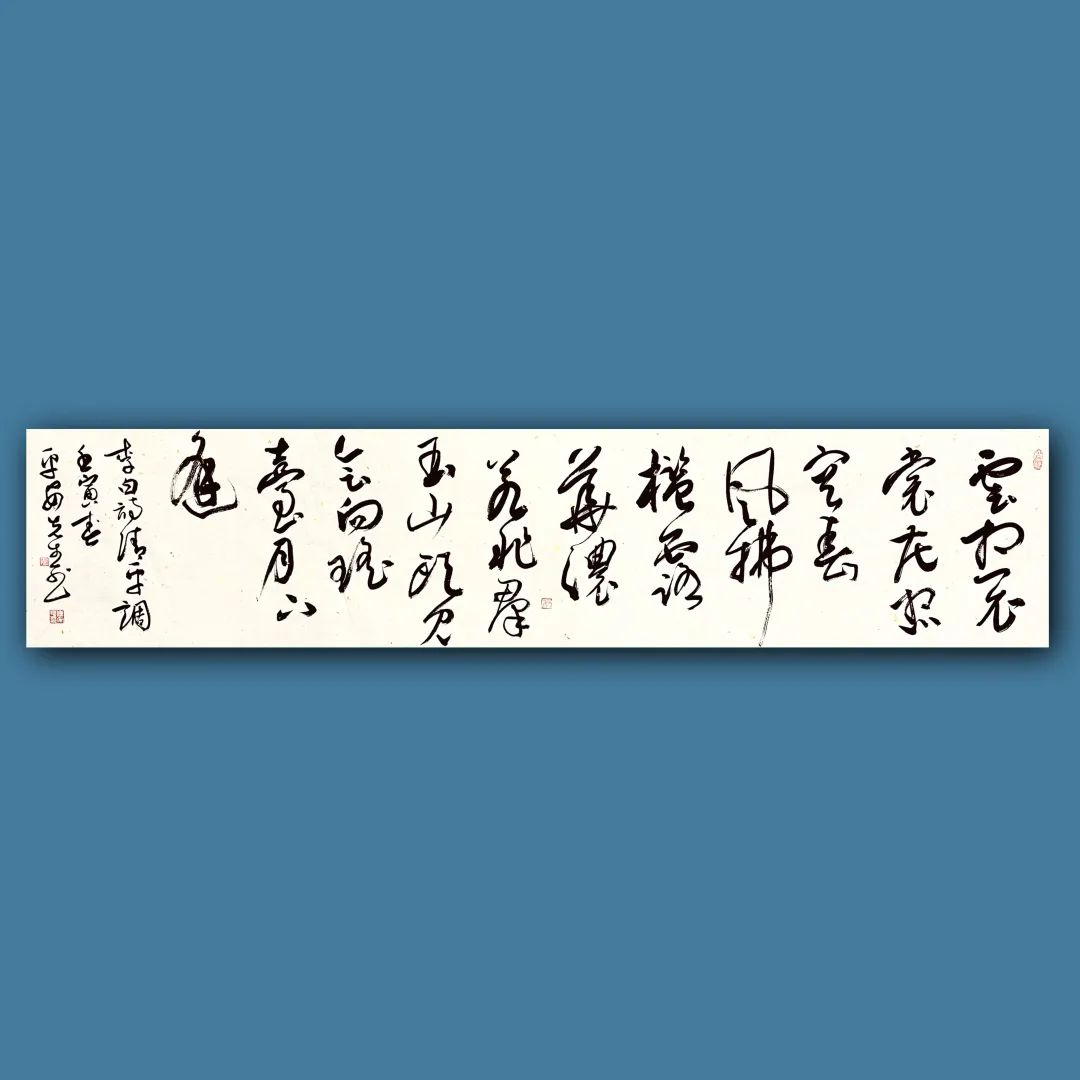 雲想衣
裳花想
容春
風拂
檻露
華濃
若非羣
玉山頭見
會向瑤
臺月下
逢
李白詩清平調
壬寅春
平安先生